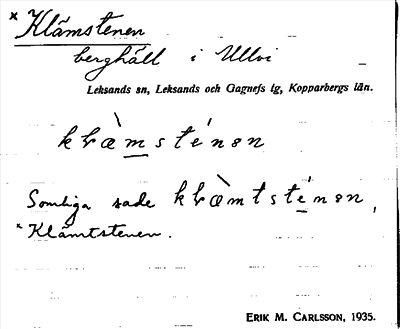 × Klämstenen
berghäll i Ullvi
Leksands sn, Leksands och Gagnefs tg, Kopparbergs län.
klæ̀msténən
Somliga sade klæ̀mtsténən,
× Klämtstenen.
ERIK M. CARLSSON, 1935.